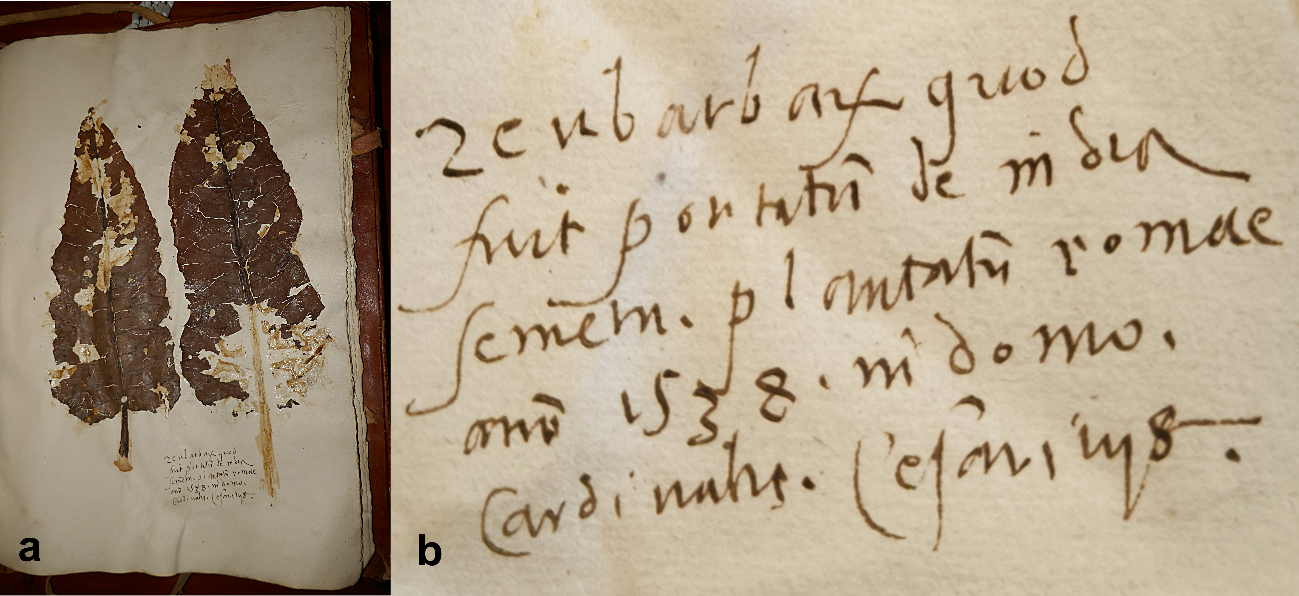 reubarbarx quod
fuit portatū de india
semēm. plantatū romae
anō 1538. in domo.
Cardinalis. Cesarinys.
a
b